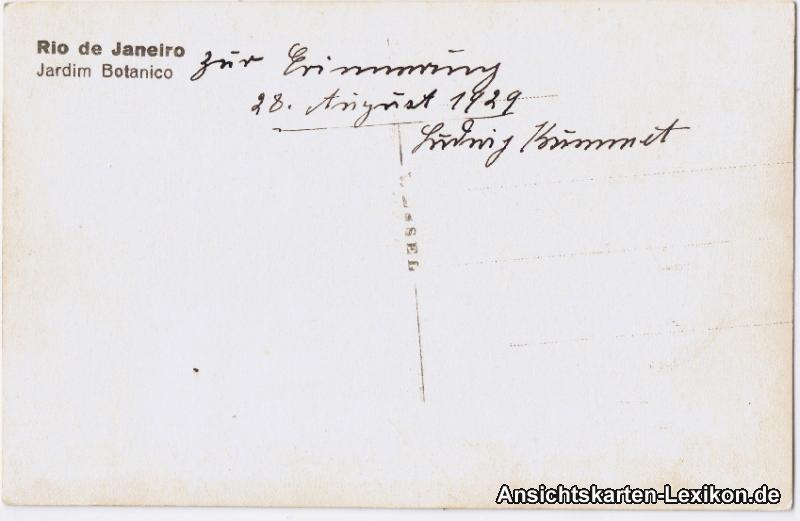 Rio de Janeiro
Jardim Botanico
zur Erinnerung
28. August 1929
Ludwig Kummet
Ansichtskarten-Lexikon.de